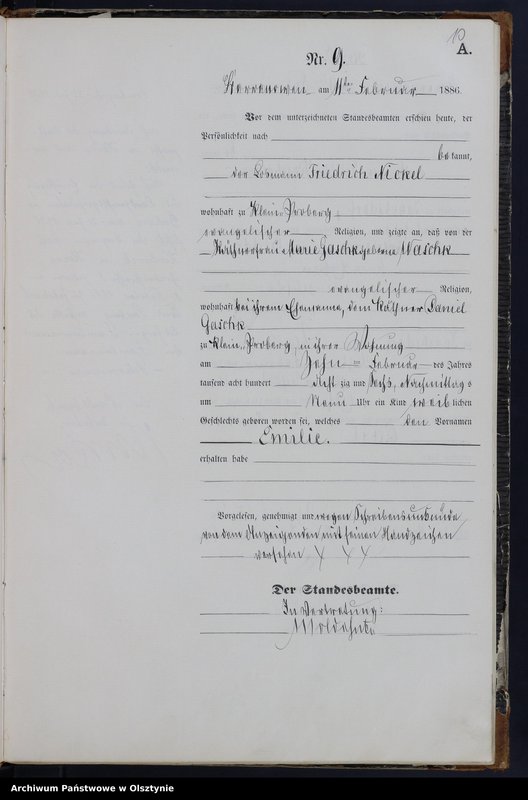 10
A.
Nr. 9.
am 11ten Februar 1886.
Vor dem unterzeichneten Standesbeamten erschien heute, der
Persönlichkeit nach
bekannt,
der Losmann Friedrich Nickel
wohnhaft zu Klein Proberg
evangelischer Religion, und zeigte an, daß von der
Käthnerfrau Marie Gaschk geborene Waschk
evangelischer Religion,
wohnhaft bei ihrem Ehemanne, dem Käthner Daniel
Gaschk
zu Klein Proberg, in ihrer Wohnung
am Zehn ten Februar des Jahres
tausend acht hundert Acht zig und Sechs, Nachmittags
um Neun Uhr ein Kind weiblichen
Geschlechts geboren worden sei, welches den Vornamen
Emilie.
erhalten habe
Vorgelesen, genehmigt und wegen Schreibensunkunde
von dem Anzeigenden mit seinen Handzeichen
versehen X X X
Der Standesbeamte.
In Vertretung:
Archiwum Państwowe w Olsztynie